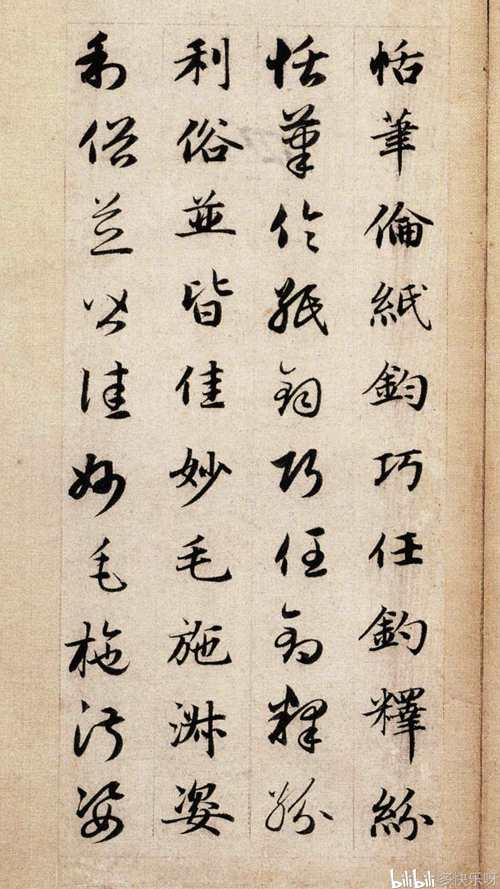 恬筆倫紙鈞巧任釣釋紛
恬筆倫紙鈞巧任釣釋紛
利俗並皆佳妙毛施淑姿
利俗並皆佳妙毛施淑姿
bilibili 多快乐呀